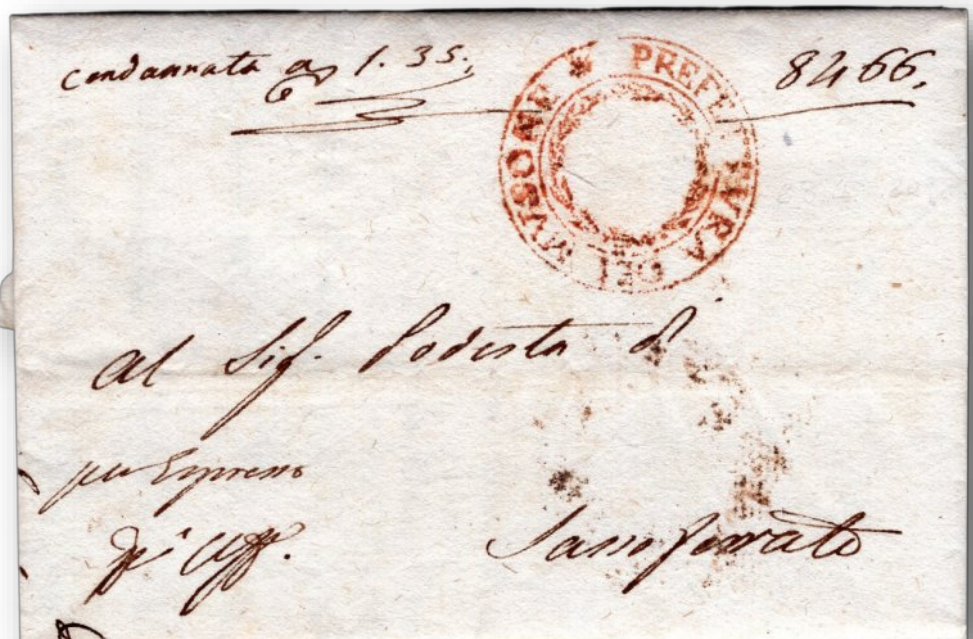 condannata a 1.35. 8466.
PREFETTURA DEL MUSONE
Al Sig. Podesta di
per Espresso
Uff.
Sassoferrato